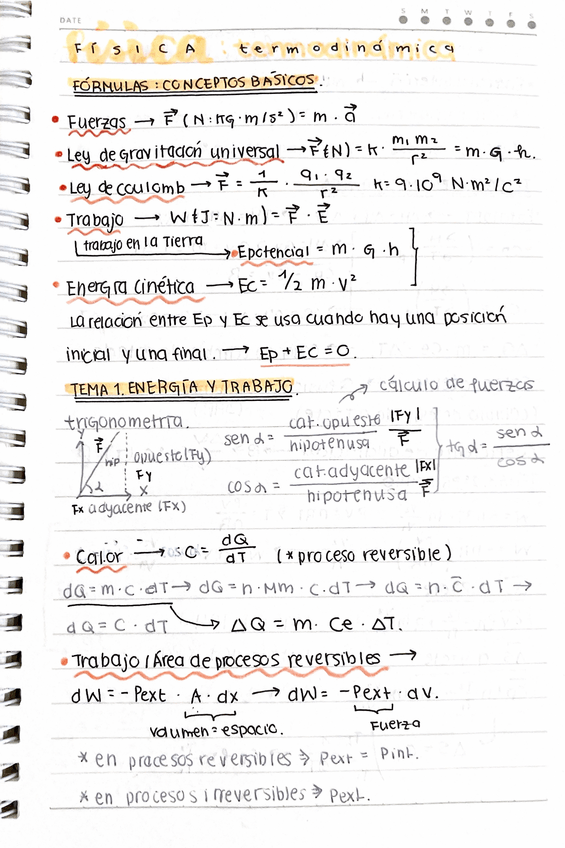 DATE S M T W T F S
Física: termodinámica
FÓRMULAS: CONCEPTOS BÁSICOS.
• Fuerzas → F⃗ (N: KG·m/s²) = m · a⃗
• Ley de Gravitación universal → F⃗(N) = K · m₁ m₂ / r² = m · G · h.
• Ley de coulomb → F⃗ = 1/K · q₁ · q₂ / r² K = 9·10⁹ N·m²/C²
• Trabajo → W(J = N·m) = F⃗ · E⃗
trabajo en la Tierra
→ • Epotencial = m · G · h
• Energía cinética → Ec = 1/2 m · v²
La relación entre Ep y Ec se usa cuando hay una posición
inicial y una final. → Ep + Ec = 0.
TEMA 1. ENERGÍA Y TRABAJO. → cálculo de fuerzas
trigonometría.
y F⃗ hip opuesto (Fy) Fy α x
Fx adyacente (Fx)
sen α = cat. opuesto / hipotenusa |Fy| / F⃗
cos α = cat. adyacente / hipotenusa |Fx| / F⃗
tg α = sen α / cos α
• Calor → C = dQ / dT (* proceso reversible)
dQ = m · c · dT → dQ = n · Mm · c · dT → dQ = n · C̄ · dT →
dQ = C · dT → ΔQ = m · Ce · ΔT.
• Trabajo / Área de procesos reversibles →
dW = - Pext · A · dx → dW = - Pext · dv.
volumen = espacio. Fuerza
* en procesos reversibles ⇒ Pext = Pint.
* en procesos irreversibles ⇒ Pext.